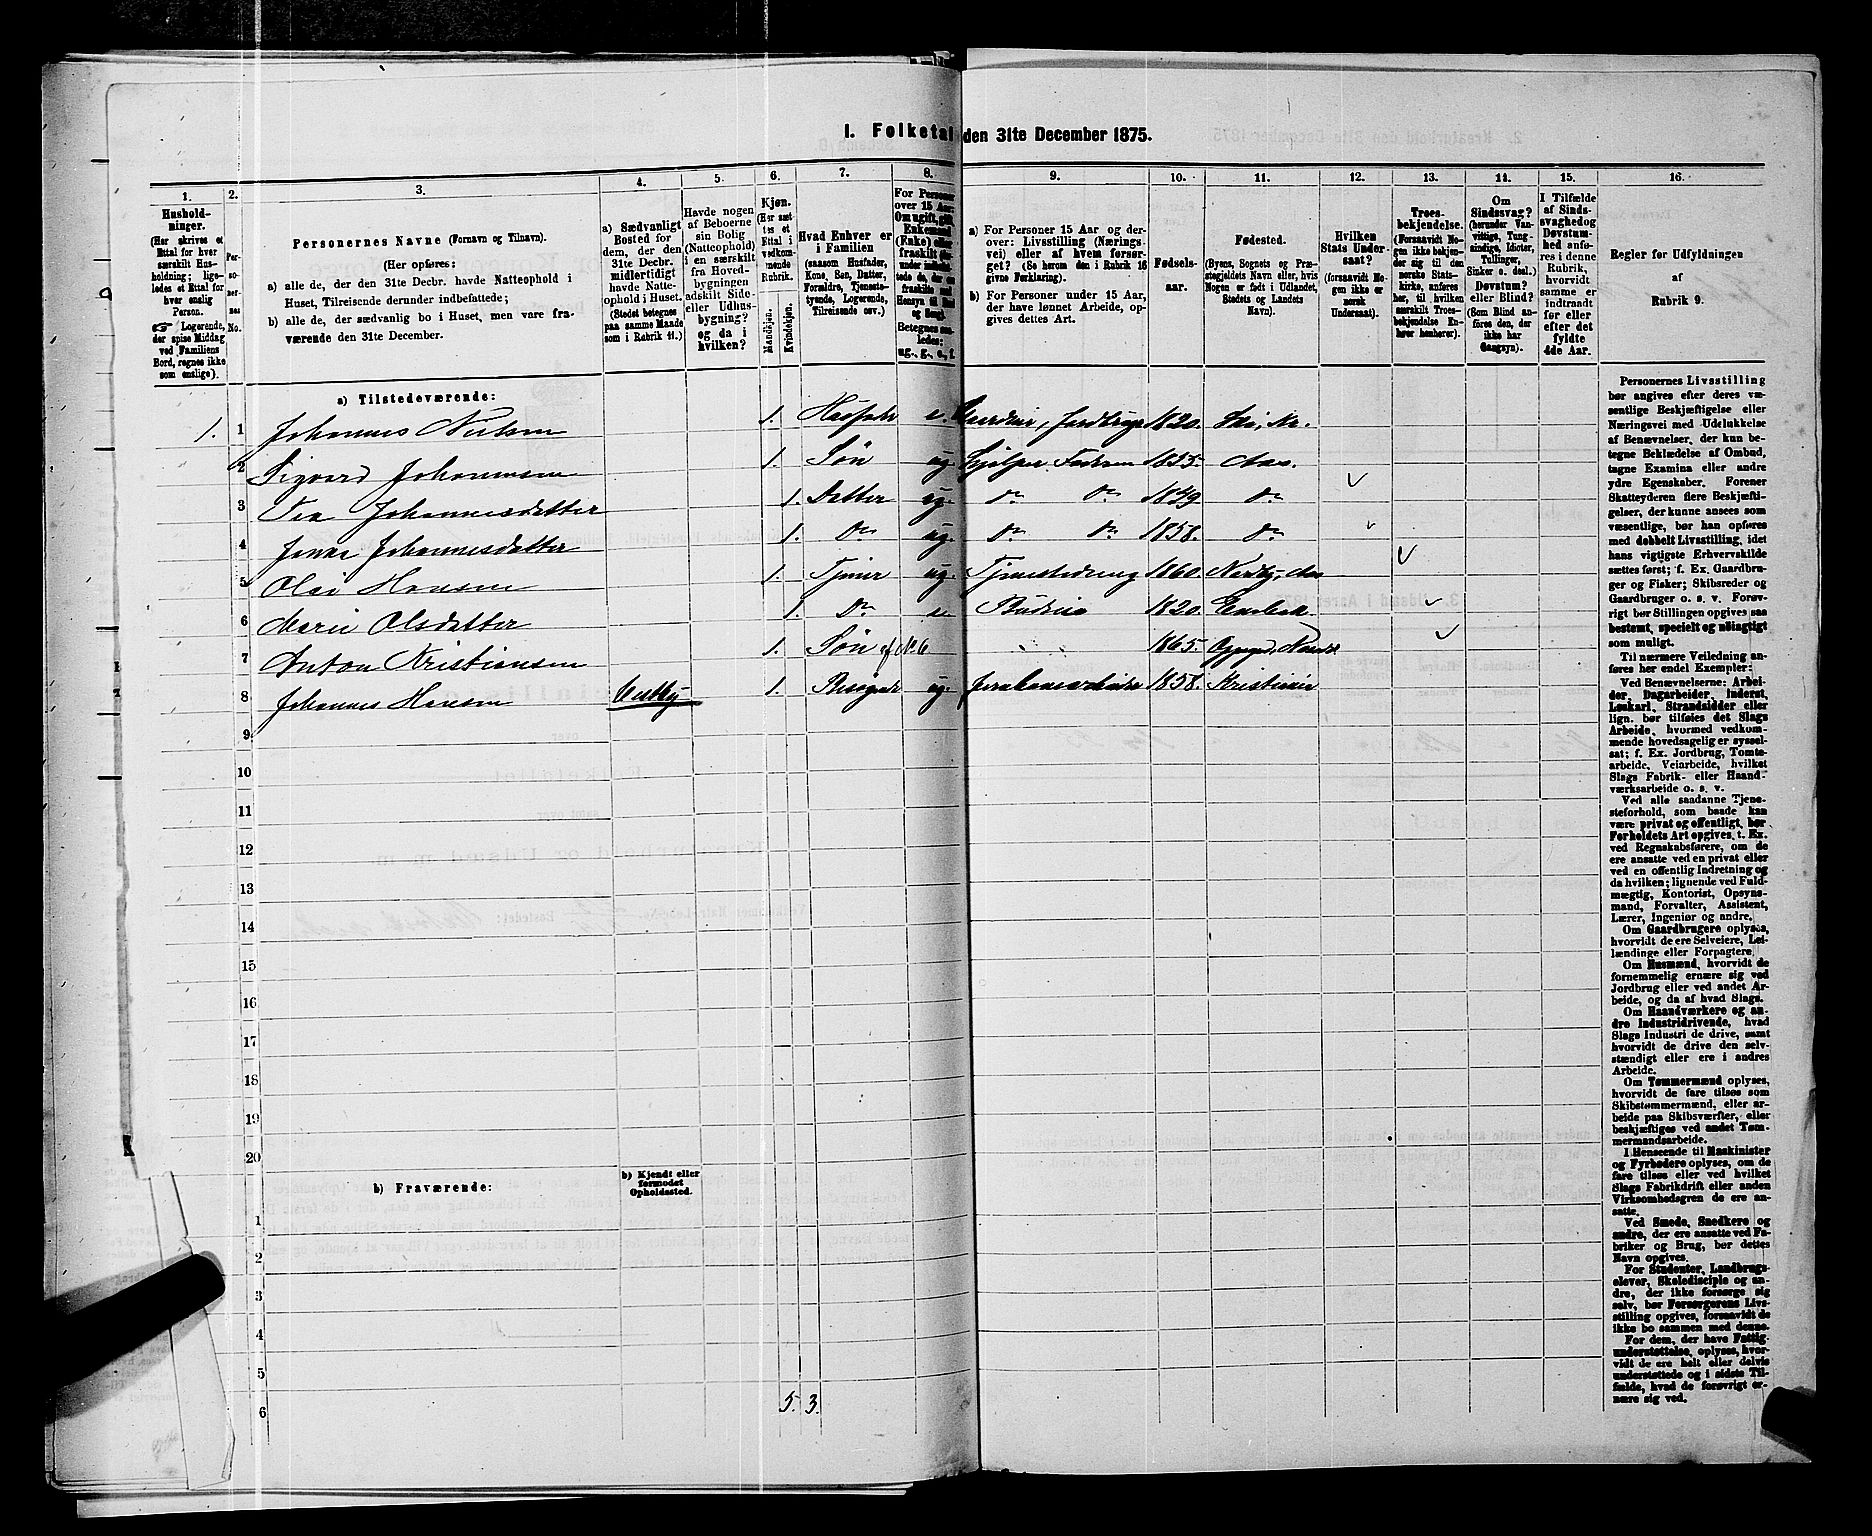 I. Folketal den 31te December 1875.
1. 2. 3. 4. 5. 6. 7. 8. 9. 10. 11. 12. 13. 14. 15. 16.
Hushold-
ninger.
(Her skrives et
Ettal for hver
særskilt Hus-
holdning; lige-
ledes et Ettal for
hver enslig
Person.
☞ Logerende,
der spise Middag
ved Familiens
Bord, regnes ikke
som enslige).
Per-
so-
ner-
nes
No.
Personernes Navne (Fornavn og Tilnavn).
(Her opføres:
a) alle de, der den 31te Decbr. havde Natteophold i
Huset, Tilreisende derunder indbefattede;
b) alle de, der sædvanlig bo i Huset, men vare fra-
værende den 31te December.
a) Sædvanligt
Bosted for
dem, der den
31te Decbr.
midlertidigt
havde Natte-
ophold i Huset.
(Stedet betegnes
paa samme Maade
som i Rubrik 11.)
Havde nogen
af Beboerne
sin Bolig
(Natteophold)
i en særskilt
fra Hoved-
bygningen
adskilt Side-
eller Udhus-
bygning?
og da i
hvilken?
Kjøn.
(Her sæt-
tes et
Ettal i
vedkom-
mende
Rubrik.
Mandkjøn.
Kvindekjøn.
Hvad Enhver er
i Familien
(saasom Husfader,
Kone, Søn, Datter,
Forældre, Tjeneste-
tyende, Logerende,
Tilreisende osv.)
For Personer
over 15 Aar:
Om ugift, gift,
Enkemand
(Enke) eller
fraskilt
Betegnes saa-
ledes:
ug., g., e., f.
a) For Personer 15 Aar og der-
over: Livsstilling (Nærings-
vei) eller af hvem forsør-
get? (Se herom den i Rubrik 16
givne Forklaring).
b) For Personer under 15 Aar,
der have lønnet Arbeide, op-
gives dettes Art.
Fødsels-
aar.
Fødested.
(Byens, Sognets og Præ-
stegjeldets Navn eller, hvis
Nogen er født i Udlandet,
Stedets og Landets
Navn).
Hvilken
Stats Under-
saat?
(forsaavidt No-
gen ikke er
norsk
Undersaat).
Troes-
bekjendelse.
(Forsaavidt No-
gen ikke bekjen-
der sig til den
norske Stats-
kirke, anføres
her, til hvilken
særskilt Troes-
bekjendelse En-
hver henhører).
Om
Sindssvag?
(herunder Van-
vittige, Tung-
sindige, Idioter,
Tullinger,
Sinker o. desl.)
Døvstum?
eller Blind?
(Som Blind an-
føres den, der
ikke har
Gangsyn).
I Tilfælde
af Sinds-
svaghed og
Døvstum-
hed anfø-
res i denne
Rubrik,
hvorvidt
samme er
indtraadt
før eller
efter det
fyldte
4de Aar.
Regler for Udfyldningen
af
Rubrik 9.
a) Tilstedeværende:
1. 1 Johannes Nielsen 1. Husfader e. Gaardeier, Jordbruger 1820. Ski, Kr.
2 Sigvard Johannesen 1. Søn ug. Hjelper Faderen 1855. Aas.
3 Tea Johannesdatter 1. Datter ug. do do 1849 do
4 Johannesdatter 1. do ug. do do 1858. do
5 Hansen 1. Tjener ug. Tjenestedreng 1860. Aas
6 Marie Olsdatter 1. do e 1820. Enebak.
7 Anton Kristiansen 1. Søn af No. 6 1865.
8 Johannes Hansen Vestby 1. Besøgende ug. Jernbanearbeider 1858. Kristiania
9
10
11
12
13
14
15
16
17
18
19
20
b) Fraværende:
b) Kjendt eller
formodet
Opholdssted.
1
2
3
4
5
6
5. 3.
Personernes Livsstilling
bør angives efter deres væ-
sentlige Beskjæftigelse eller
Næringsvei med Udelukkelse
af Benævnelser, der kun be-
tegne Beklædelse af Ombud,
tagne Examina eller andre
ydre Egenskaber. Forener
Skatteyderen flere Beskjæfti-
gelser, der kunne ansees som
væsentlige, bør han opføres
med dobbelt Livsstilling, idet
hans vigtigste Erhvervskilde
sættes først; f. Ex. Gaardbru-
ger og Fisker; Skibsreder og
Gaardbruger o. s. v. Forøv-
rigt bør Stillingen opgives saa
bestemt, specielt og nøiagtigt
som muligt.
Til nærmere Veiledning an-
føres her endel Exempler:
Ved Benævnelserne: Arbei-
der, Dagarbeider, Inderst,
Løskarl, Strandsidder eller
lign. bør tilføies det Slags
Arbeide, hvormed vedkom-
mende hovedsagelig er syssel-
sat; f. Ex. Jordbrug, Tomte-
arbeide, Veiarbeide, hvilket
Slags Fabrik- eller Haand-
værksarbeide o. s. v.
Ved alle saadanne Tjene-
steforhold, som baade kan
være privat og offentligt, bør
Forholdets Art opgives, t. Ex.
ved Regnskabsførere, om de
ere ansatte ved en privat eller
ved en offentlig Indretning og
da hvilken; lignende ved Fuld-
mægtig, Kontorist, Opsyns-
mand, Forvalter, Assistent,
Lærer, Ingeniør og andre.
Om Gaardbrugere oplyses,
hvorvidt de ere Selveiere, Lei-
lændinge eller Forpagtere.
Om Husmænd, hvorvidt de
fornemmelig ernære sig ved
Jordbrug eller ved andet Ar-
beide, og da af hvad Slags.
Om Haandværkere og an-
dre Industridrivende, hvad
Slags Industri de drive, samt
hvorvidt de drive den selv-
stændigt eller ere i andres
Arbeide.
Om Tømmermænd oplyses,
hvorvidt de fare tilsøs som
Skibstømmermænd, eller ar-
beide paa Skibsværfter, eller
beskjæftiges ved andet Tøm-
mermandsarbeide.
I Henseende til Maskinister
og Fyrbødere oplyses, om de
fare tilsøs eller ved hvilket
Slags Fabrikdrift eller anden
Virksomhedsgren de ere an-
satte.
Ved Smede, Snedkere og
andre, der ere ansatte ved Fa-
briker og Brug, bør dettes
Navn opgives.
For Studenter, Landbrugs-
elever, Skoledisciple og an-
dre, der ikke forsørge sig
selv, bør Forsørgerens Livs-
stilling opgives, forsaavidt de
ikke bo sammen med denne.
For dem, der have Fattig-
understøttelse, oplyses, hvor-
vidt de ere helt eller delvis
understøttede og i sidste Til-
fælde, hvad de forøvrigt er-
nære sig ved.